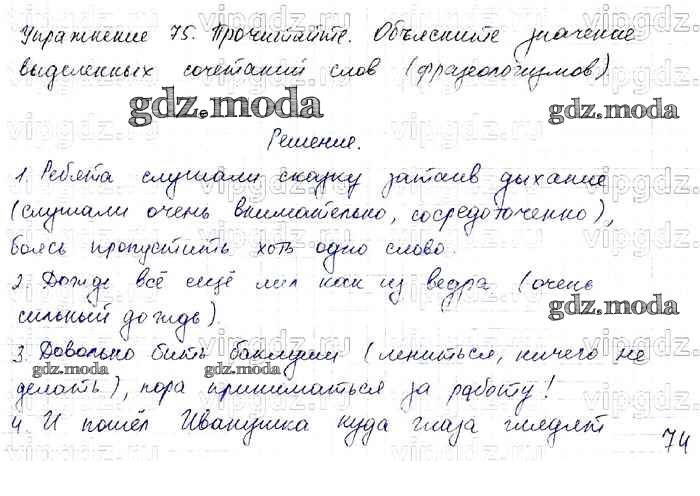 Упражнение 75. Прочитайте. Объясните значение
выделенных сочетаний слов (фразеологизмов).
gdz.moda
gdz.moda
Решение.
1. Ребята слушали сказку затаив дыхание
(слушали очень внимательно, сосредоточенно),
боясь пропустить хоть одно слово.
2. Дождь всё ещё лил как из ведра (очень
gdz.moda
сильный дождь).
3. Довольно бить баклуши (лениться, ничего не
gdz.moda
gdz.moda
делать), пора приниматься за работу!
4. И пошёл Иванушка куда глаза глядят
74